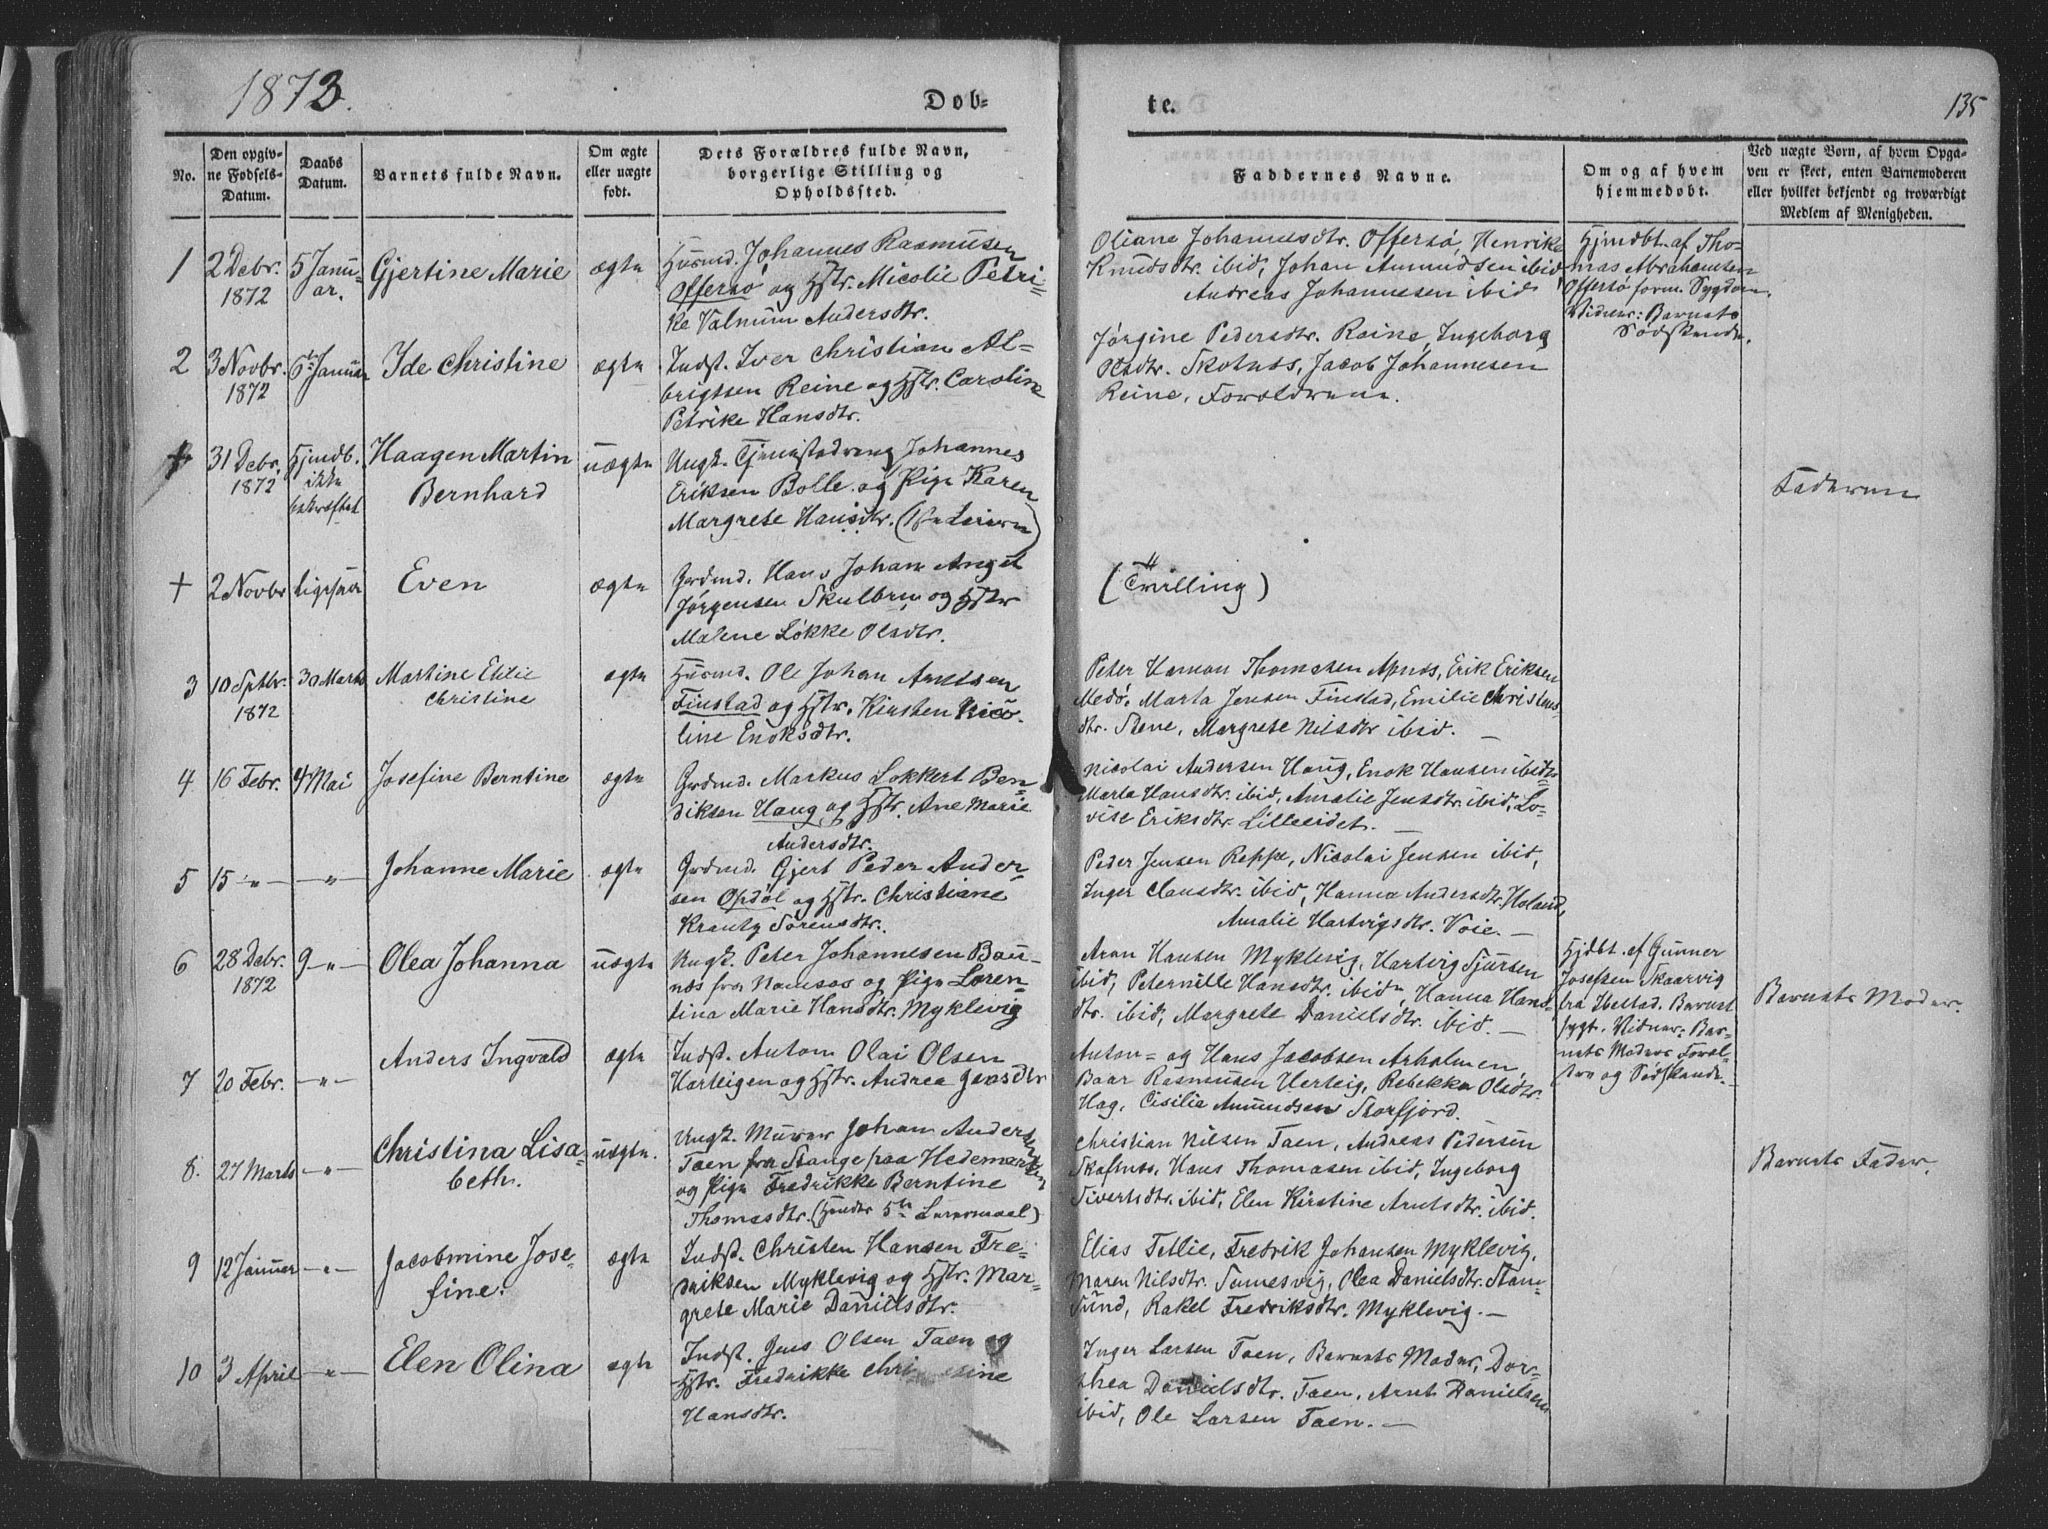 1873.
Døb-
te.
135
No.
Den opgiv-
ne Fødsels-
Datum.
Daabs
Datum.
Barnets fulde Navn.
Om ægte
eller uægte
født.
Dets Forældres fulde Navn,
borgerlige Stilling og
Opholdssted.
Faddernes Navne.
Om og af hvem
hjemmedøbt.
Ved uægte Børn, af hvem Opga-
ven er skeet, enten Barnemoderen
eller hvilket bekjendt og troværdigt
Medlem af Menigheden.
1
2 Debr.
1872
5 Janu-
ar.
Gjertine Marie
ægte
Husmd. Johannes Rasmusen
Offersø og Hstr. Micolie Petri-
ke Valnum Andersdtr.
Oliane Johannesdtr. Offersø, Henrikke
Knudsdtr. ibid, Johan Amundsen ibid,
Andreas Johannesen ibid
Hjmdbt. af Tho-
mas Abrahamsen
Offersø form. Sygdom.
Vidner: Barnets
Sødskende.
2
3 Novbr.
1872
6te Januar
Ide Christine
ægte
Indst. Iver Christian Al-
brigtsen Reine og Hstr. Caroline
Petrike Hansdtr.
Jørgine Pedersdtr. Reine, Ingeborg
Olsdtr. Skotnæs, Jacob Johannesen
Reine, Forældrene.
+
31 Debr.
1872
Hjmdb.
ikke
bekræftet
Haagen Martin
Bernhard
uægte
Ungk. Tjenestedreng Johannes
Eriksen Bolle og Pige Karen
Margrete Hansdtr.
Faderen
+
2 Novbr
Even
ægte
Grdmd. Hans Johan Angel
Jørgensen Skulbru og Hstr
Malene Løkke Olsdtr.
(Tvilling)
3
10 Sptbr.
1872
30 Marts
Martine Elilie
Christine
ægte
Husmd. Ole Johan Arntsen
Finstad og Hstr. Kirsten Nico-
line Enoksdtr.
Peter Hemon Thomesen Apnæs, Erik Eriksen
Medø, Marta Jensen Finstad, Emilie Christens-
dtr. Stene, Margrete Nilsdtr ibid. —
4
16 Febr.
4 Mai
Josefine Berntine
ægte
Grdmd. Markus Lokkert Ben-
diksen Haug og Hstr. Ane Marie
Andersdtr.
Nicolai Andersen Haug, Enok Hansen ibid,
Marta Hansdtr. ibid, Amalie Jensdtr. ibid, Lo-
vise Eriksdtr. Lilleeidet. —
5
15 —〃—
—〃—
Johanne Marie
ægte
Grdmd. Gjert Peder Ander-
sen Opdøl og Hstr. Christiane
Krantz Sørensdtr.
Peder Jensen Reppe, Nicolai Jensen ibid,
Inger Clausdtr. ibid, Hanna Andersdtr. Holand,
Amalie Hartvigsdtr. Voie. —
6
28 Debr.
1872
9 —〃—
Olea Johanna
uægte
Ungk. Peter Johannesen Bau-
næs fra Namsos og Pige Loren-
tina Marie Hansdtr. Myklevig
Aron Hansen Myklevig, Hartvig Sjursen
ibid, Peternille Hansdtr. ibid, Hanna Hans-
dtr. ibid, Margrete Danielsdtr. ibid. —
Hjdbt. af Gunner
Josefsen Skaarvig
fra Ibestad. Barnet
sygt. Vidner: Bar-
nets Moders Foræl-
dre og Sødskende.
Barnets Moder.
7
20 Febr.
—〃—
Anders Ingvald
ægte
Indst. Anton Olai Olsen
Harteigen og Hstr. Andrea Jensdtr
Anton- og Hans Jacobsen Arholmen,
Baar Rasmusen Herteig, Rebekka Olsdtr.
Hag, Cisilie Amundsen Storfjord.
8.
27 Marts
—〃—
Christina Lisa-
beth.
uægte.
Ungk. Murer Johan Andersen
Taen fra Stange paa Hedemarken
og Pige Fredrikke Berntine
Thomasdtr.
Christian Nilsen Taen, Andreas Pedersen
Skafnæs, Hans Thomasen ibid, Ingeborg
Sivertsdtr. ibid, Elen Kirstine Arntsdtr. ibid.
Barnets Fader.
9
12 Januar
—〃—
Jacobmine Jose-
fine.
ægte
Indst. Christen Hansen Fre-
driksen Myklevig og Hstr. Mar-
grete Marie Danielsdtr.
Elias Tetlie, Fredrik Johansen Myklevig,
Maren Nilsdtr. Sennesvig, Olea Danielsdtr. Stam-
sund, Rakel Fredriksdtr. Myklevig. —
10
3 April
—〃—
Elen Olina
ægte
Indst. Jens Olsen Taen og
Hstr. Fredrikke
Hansdtr.
Inger Larsen Taen, Barnets Moder, Dor-
thea Danielsdtr. Taen, Arnt Danielsen
ibid, Ole Larsen Taen. —